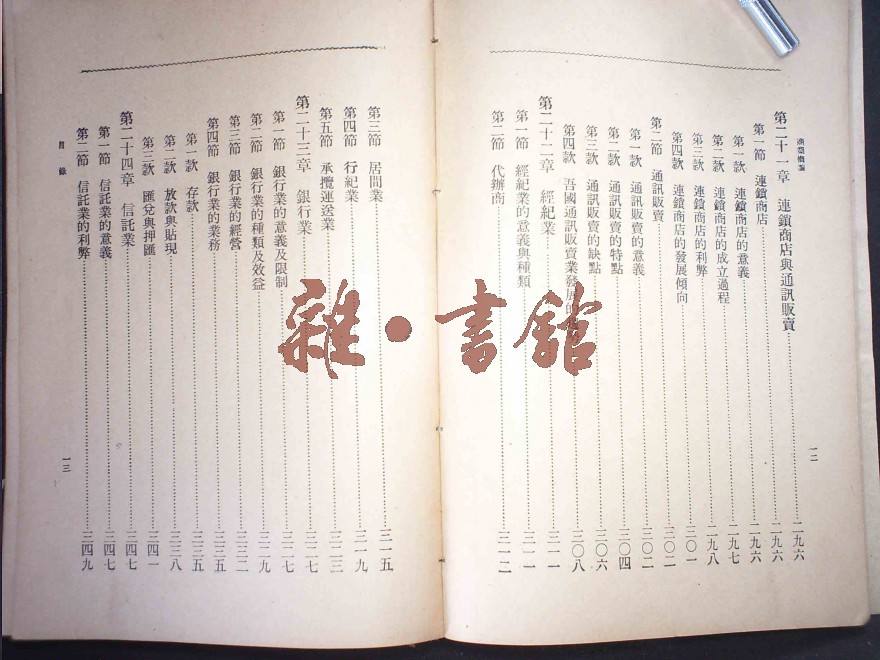 商業概論
第二十一章 連鎖商店與通訊販賣……二九六
第一節 連鎖商店……二九六
第一款 連鎖商店的意義……二九六
第二款 連鎖商店的成立過程……二九七
第三款 連鎖商店的利弊……二九八
第四款 連鎖商店的發展傾向……三〇一
第二節 通訊販賣……三〇二
第一款 通訊販賣的意義……三〇二
第二款 通訊販賣的特點……三〇四
第三款 通訊販賣的缺點……三〇六
第四款 吾國通訊販賣業發展的……三〇八
第二十二章 經紀業……三一一
第一節 經紀業的意義與種類……三一一
第二節 代辦商……三一二
一二
第三節 居間業……三一五
第四節 行紀業……三一九
第五節 承攬運送業……三二三
第二十三章 銀行業……三二七
第一節 銀行業的意義及限制……三二七
第二節 銀行業的種類及效益……三二九
第三節 銀行業的經營……三三二
第四節 銀行業的業務……三三五
第一款 存款……三三五
第二款 放款與貼現……三三八
第三款 匯兌與押匯……三四一
第二十四章 信託業……三四七
第一節 信託業的意義……三四七
第二節 信託業的利弊……三四九
目錄
一三
雜·書館